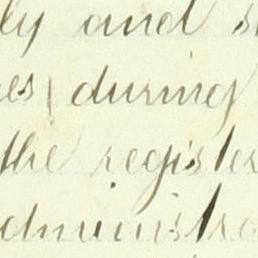 ly and s
es during
the register
administra